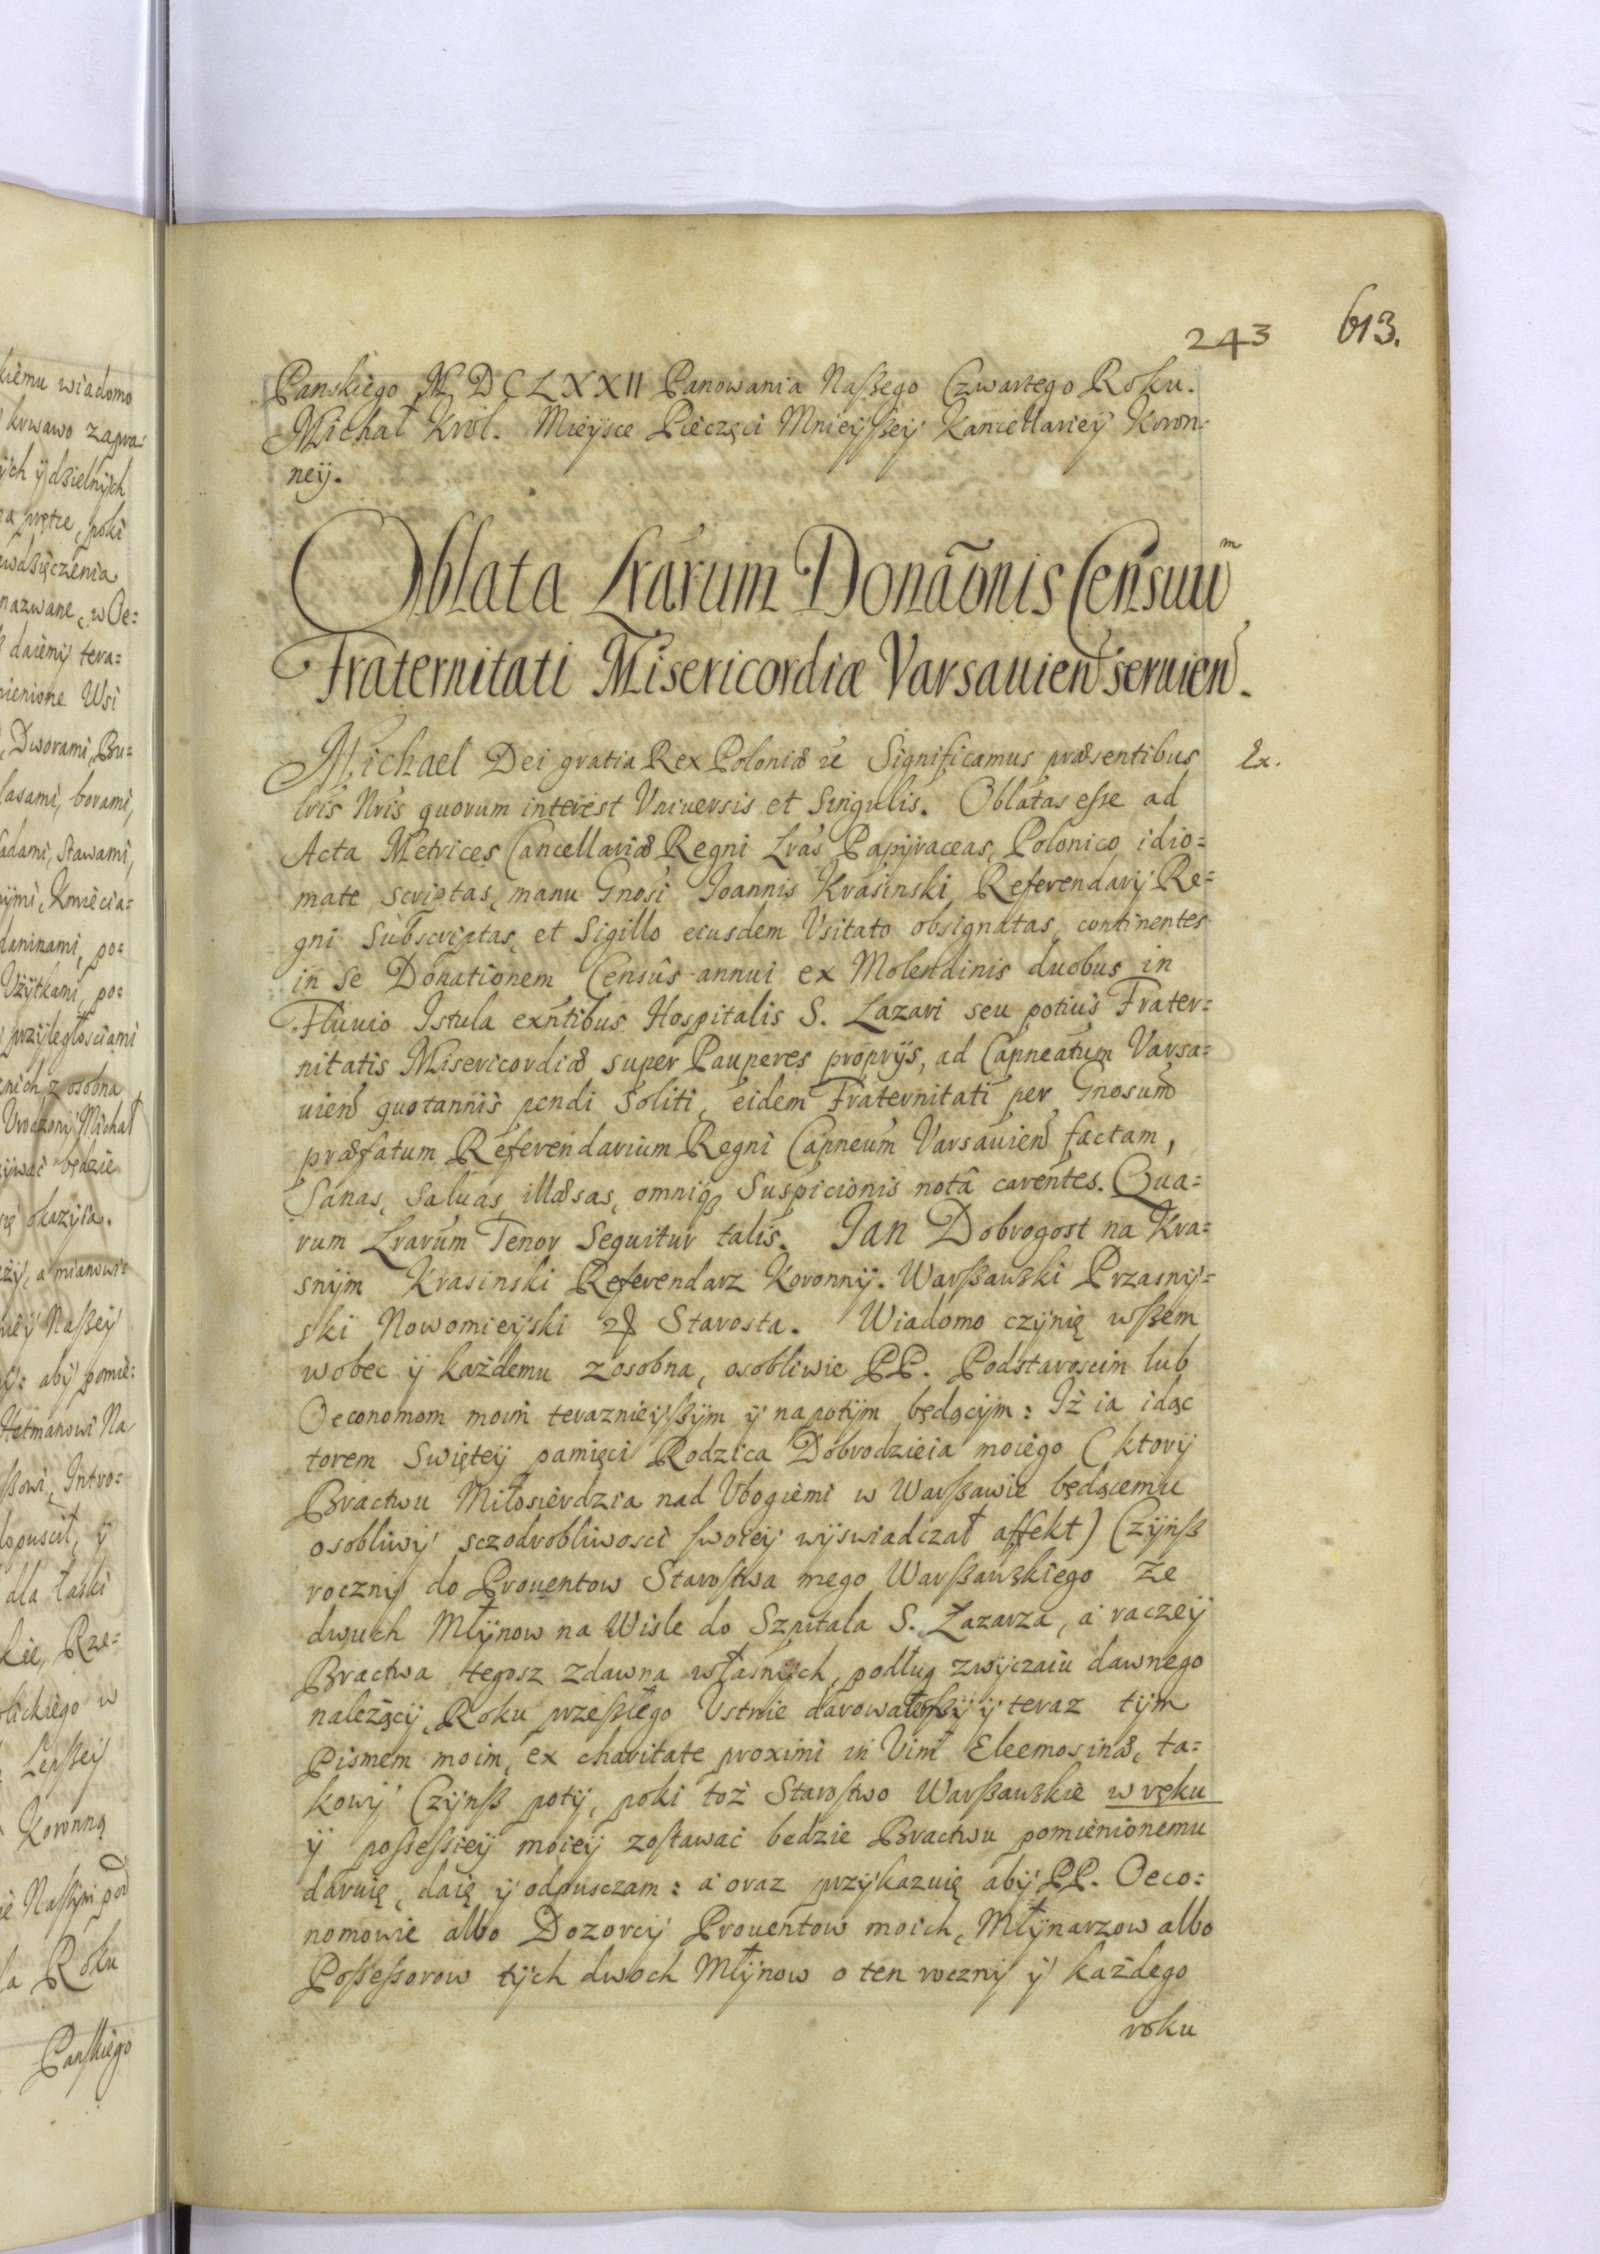 243 613.
Panskiego M DCLXXII Panowania Naßego Czwartego Roku.
Michał Krol. Mieysce Pieczęci Mnieyßey Kancellariey Koron-
ney.
Oblata Lrarum Donãonis Censuu̅ m
Fraternitati Misericordiæ Varsauien̄ seruien̄.
Michael Dei gratia Rex Poloniæ &c Significamus præsentibus
Ex.
lris Nris quorum interest Vniuersis et Singulis. Oblatas eſse ad
Acta Metrices Cancellariæ Regni Lras Papyraceas, Polonico idio=
mate scriptas, manu Gnosi Joannis Krasinski Referendarij Re=
gni Subscriptas, et Sigillo eiusdem Vsitato obsignatas, continentes
in se Donationem Censûs annui ex Molendinis duobus in
Fluuio Istula exñtibus Hospitalis S. Lazari seu potius Frater=
nitatis Misericordiæ super Pauperes proprijs, ad Capneatum Varsa=
uien̄ quotannis pendi soliti, eidem Fraternitati per Gnosum
præfatum Referendarium Regni Capneum Varsauien̄ factam,
Sanas, Saluas, illæsas, omniqꝫ Suspicionis notâ carentes. Qua=
rum Lrarum Tenor Sequitur talis. Jan Dobrogost na Kra=
snym Krasinski Referendarz Koronny. Warßawski Przasny=
ski Nowomieyski &c Starosta. Wiadomo czynię wßem
wobec y każdemu zosobna, osobliwie PP. Podstaroscim lub
Oeconomom moim teraznieyßym y napotym będącym: Iż ia idąc
torem Swiętey pamięci Rodzica Dobrodzieia moiego (ktory
Bractwu Miłosierdzia nad Vbogiemi w Warßawie będącemu
osobliwy sczodrobliwosci swoiey wyswiadczał affekt) Czynß
roczny do Prouentow Starostwa mego Warßawskiego ze
dwuch Młynow na Wisle do Szpitala S. Łazarza, a raczey
Bractwa tegosz zdawna własnych, podług zwyczaiu dawnego
należący, Roku przeszłego Vstnie darowałem y teraz tym
Pismem moim, ex charitate proximi in Vim Eleemosinæ, ta=
kowy Czynß poty, poki toż Starostwo Warßawskie w ręku
y poſseſsiey moiey zostawać bedzie Bractwu pomienionemu
daruię, daię y odpusczam: a oraz przykazuię aby PP. Oeco:
nomowie albo Dozorcy Prouentow moich, Młynarzow albo
Poſseſsorow tych dwoch Młynow o ten roczny y każdego
roku